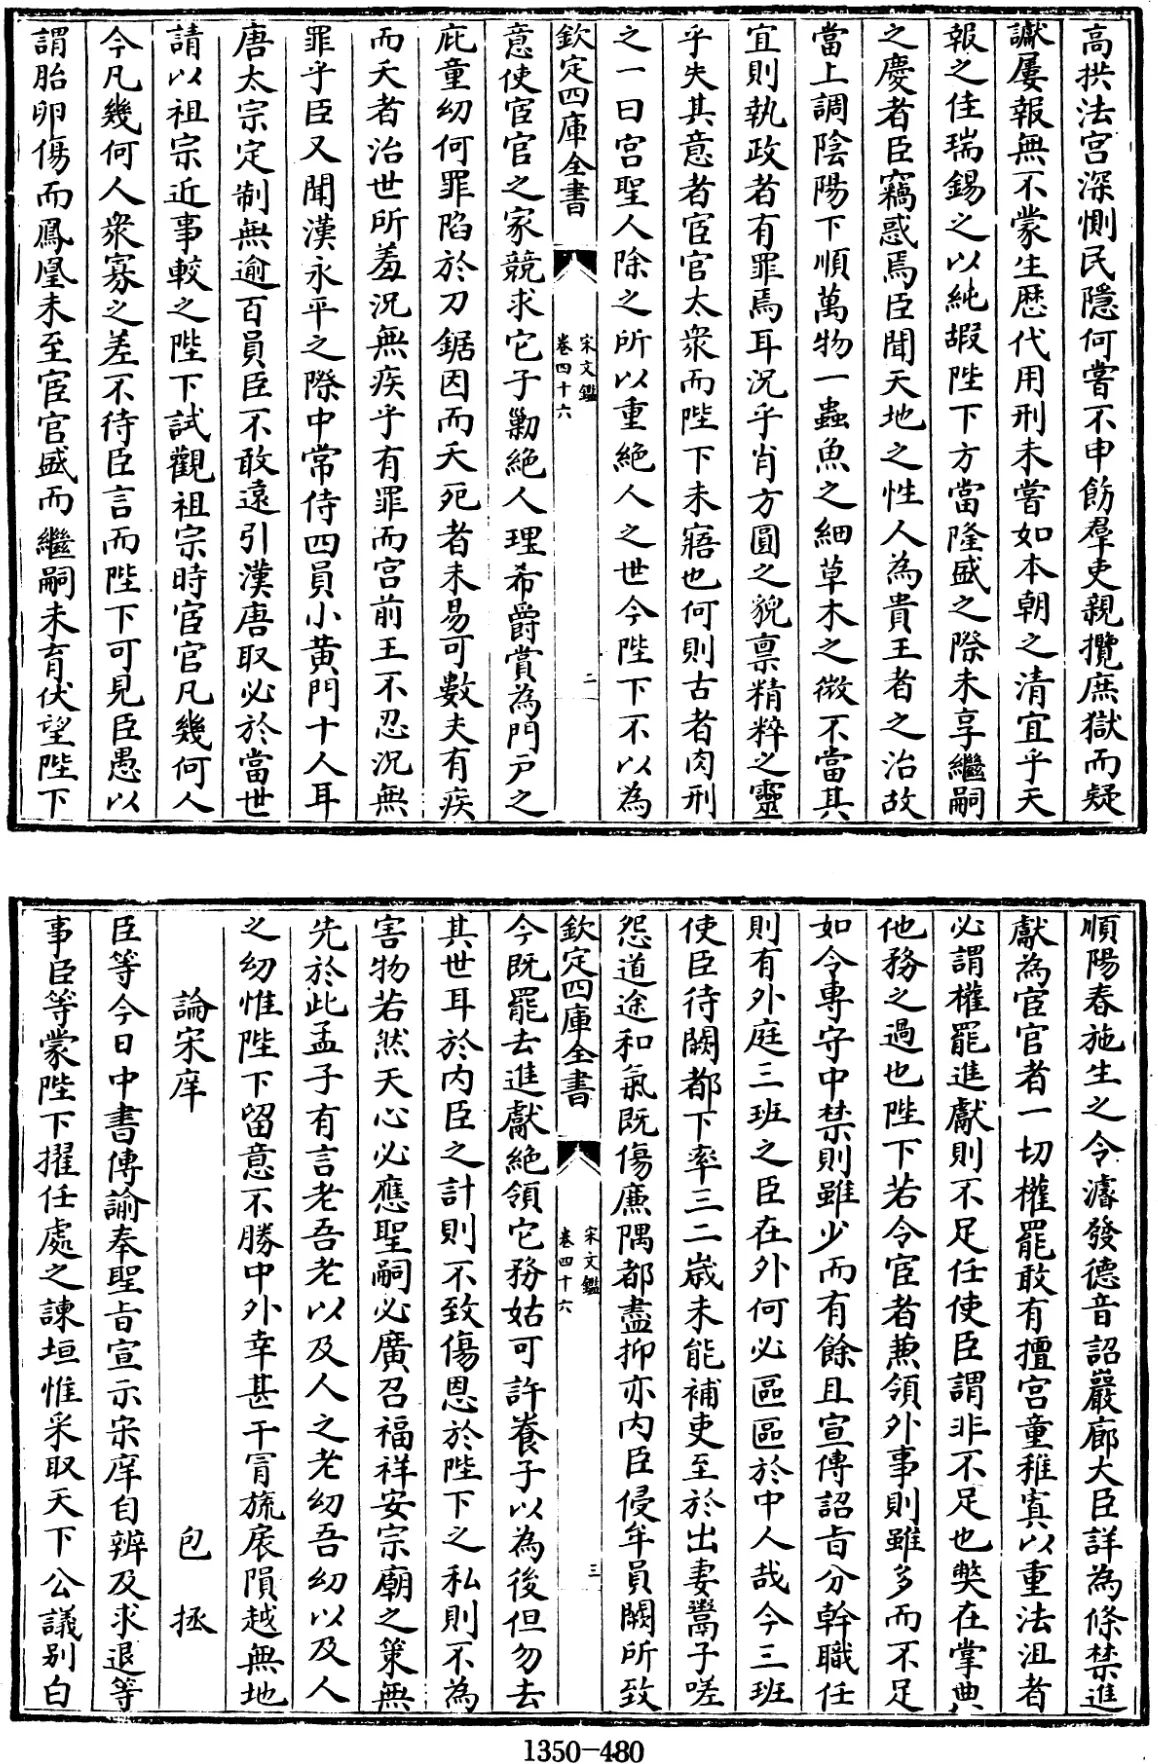 高拱法宫深惻民隱何嘗不申飭羣吏親攬庶獄而疑
讞屢報無不蒙生歴代用刑未嘗如本朝之清宜乎天
報之佳瑞錫之以純嘏陛下方當隆盛之際未享繼嗣
之慶者臣竊惑焉臣聞天地之性人為貴王者之治故
當上調陰陽下順萬物一蟲魚之細草木之微不當其
宜則執政者有罪焉耳况乎肖方圓之貌禀精粹之靈
乎失其意者宦官太衆而陛下未寤也何則古者肉刑
之一曰宫聖人除之所以重絶人之世今陛下不以為
欽定四庫全書 宋文鑑 卷四十六 二
意使宦官之家競求它子勦絶人理希爵賞為門户之
庇童幼何罪陷於刀鋸因而夭死者未易可數夫有疾
而夭者治世所羞况無疾乎有罪而宫前王不忍况無
罪乎臣又聞漢永平之際中常侍四員小黄門十人耳
唐太宗定制無逾百員臣不敢遠引漢唐取必於當世
請以祖宗近事較之陛下試觀祖宗時宦官凡幾何人
今凡幾何人衆寡之差不待臣言而陛下可見臣愚以
謂胎卵傷而鳳凰未至宦官盛而繼嗣未育伏望陛下
順陽春施生之令濬發德音詔巖廊大臣詳為條禁進
獻為宦官者一切權罷敢有擅宫童稚寘以重法沮者
必謂權罷進獻則不足任使臣謂非不足也獘在掌典
他務之過也陛下若令宦者兼領外事則雖多而不足
如令專守中禁則雖少而有餘且宣傳詔㫖分幹職任
則有外庭三班之臣在外何必區區於中人哉今三班
使臣待闕都下率三二歳未能補吏至於出妻鬻子嗟
怨道途和氣既傷廉隅都盡抑亦内臣侵牟員闕所致
欽定四庫全書 宋文鑑 卷四十六 三
今既罷去進獻絶領它務姑可許養子以為後但勿去
其世耳於内臣之計則不致傷恩於陛下之私則不為
害物若然天心必應聖嗣必廣召福祥安宗廟之策無
先於此孟子有言老吾老以及人之老幼吾幼以及人
之幼惟陛下留意不勝中外幸甚干冐旒扆隕越無地
論宋庠 包拯
臣等今日中書傳諭奉聖㫖宣示宋庠自辨及求退等
事臣等蒙陛下擢任處之諫垣惟采取天下公議别白
1350-480